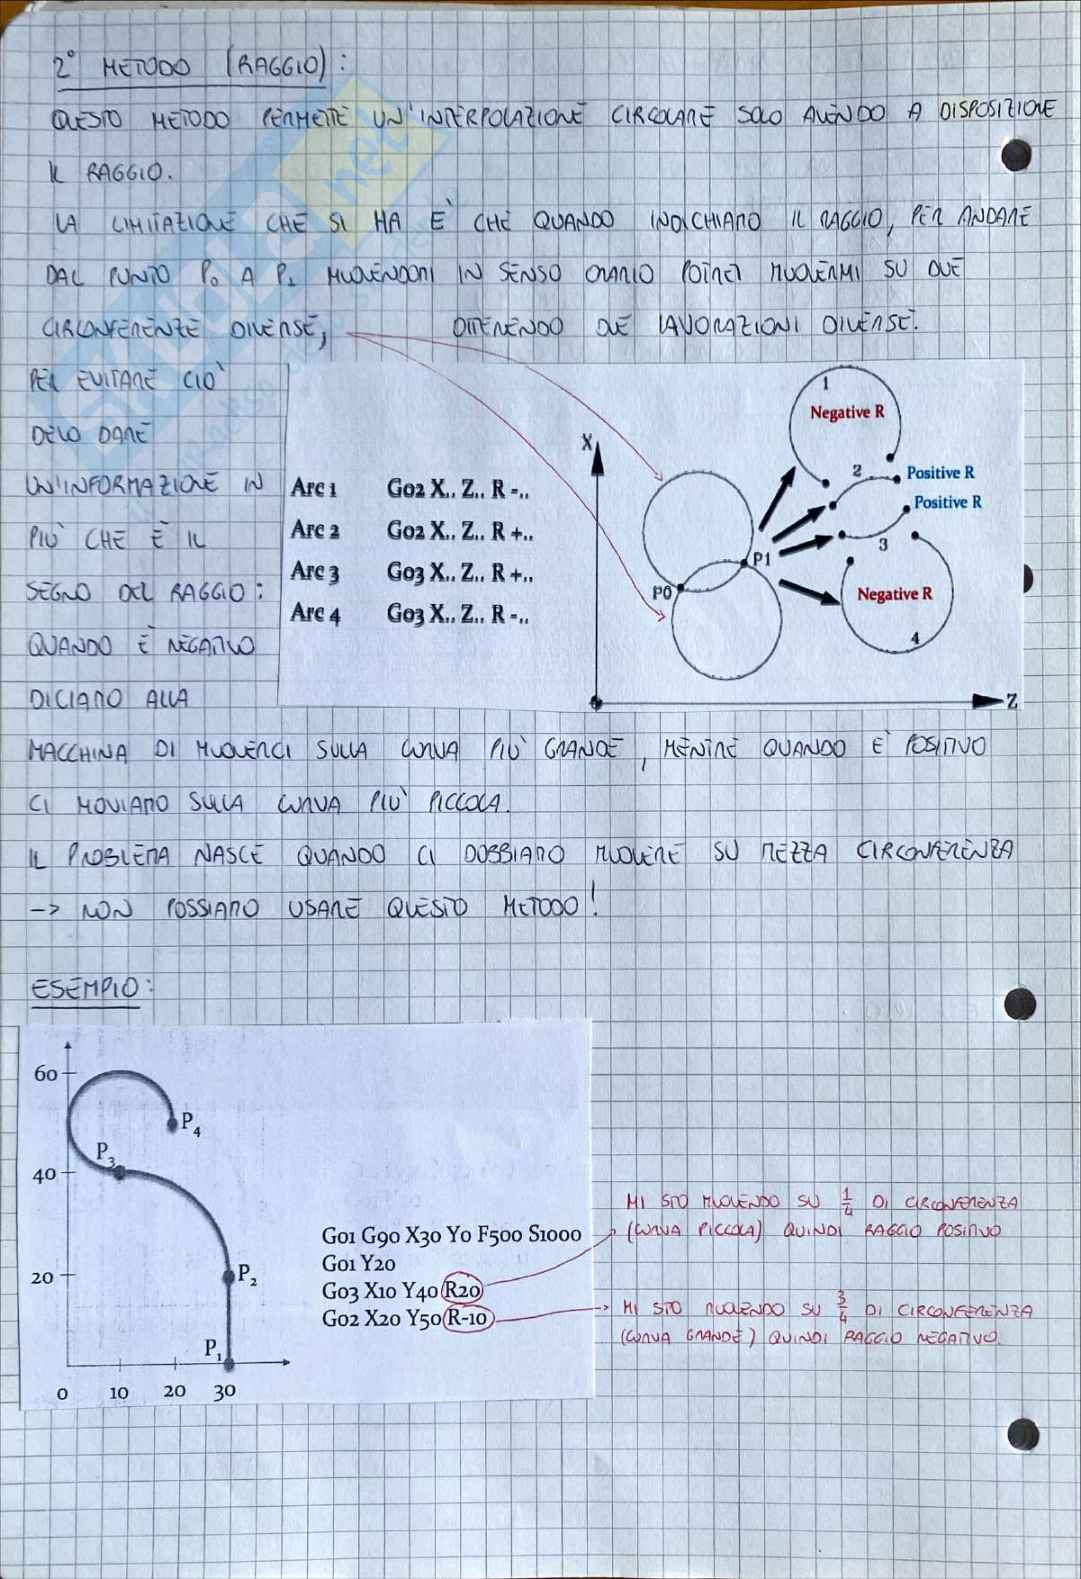 2° METODO (RAGGIO):
QUESTO METODO PERMETTE UN'INTERPOLAZIONE CIRCOLARE SOLO AVENDO A DISPOSIZIONE
IL RAGGIO.
LA LIMITAZIONE CHE SI HA E' CHE QUANDO INDICHIAMO IL RAGGIO, PER ANDARE
DAL PUNTO P0 A P1 MUOVENDOMI IN SENSO ORARIO POTREI MUOVERMI SU DUE
CIRCONFERENZE DIVERSE, OTTENENDO DUE LAVORAZIONI DIVERSE.
PER EVITARE CIO'
DEVO DARE
UN'INFORMAZIONE IN
PIU' CHE È IL
SEGNO DEL RAGGIO:
QUANDO È NEGATIVO
DICIAMO ALLA
Arc 1 G02 X.. Z.. R -..
Arc 2 G02 X.. Z.. R +..
Arc 3 G03 X.. Z.. R +..
Arc 4 G03 X.. Z.. R -..
X
P0
P1
1
Negative R
2
Positive R
Positive R
3
Negative R
4
Z
MACCHINA DI MUOVERCI SULLA CURVA PIU' GRANDE, MENTRE QUANDO E' POSITIVO
CI MOVIAMO SULLA CURVA PIU' PICCOLA.
IL PROBLEMA NASCE QUANDO CI DOBBIAMO MUOVERE SU MEZZA CIRCONFERENZA
-> NON POSSIAMO USARE QUESTO METODO!
ESEMPIO:
60
P4
P3
40
20
P2
P1
0 10 20 30
G01 G90 X30 Y0 F500 S1000
G01 Y20
G03 X10 Y40 R20
G02 X20 Y50 R-10
MI STO MUOVENDO SU 1/4 DI CIRCONFERENZA
(CURVA PICCOLA) QUINDI RAGGIO POSITIVO
MI STO MUOVENDO SU 3/4 DI CIRCONFERENZA
(CURVA GRANDE) QUINDI RAGGIO NEGATIVO.